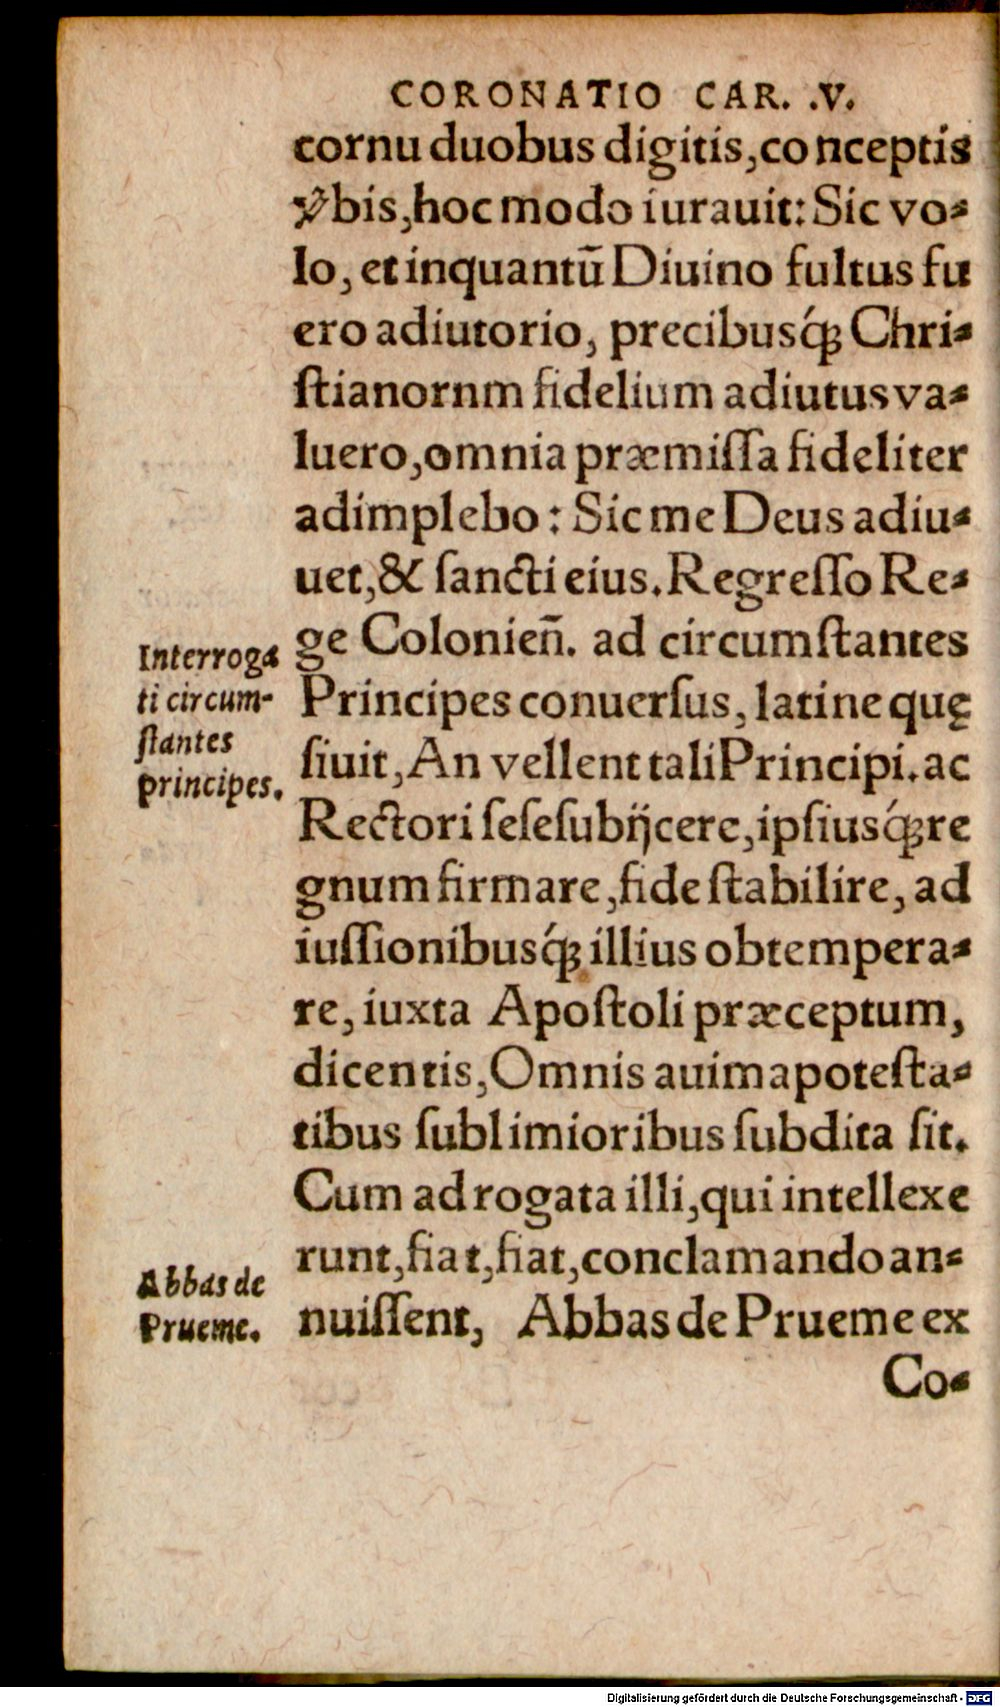 CORONATIO CAR. .V.
cornu duobus digitis, conceptis
ꝟbis, hoc modo iurauit: Sic vo⸗
lo, et inquantū Diuino fultus fu
ero adiutorio, precibusq́ꝫ Chri⸗
ſtianornm fidelium adiutus va⸗
luero, omnia præmiſſa fideliter
adimplebo: Sic me Deus adiu⸗
uet, & ſancti eius. Regreſſo Re⸗
ge Colonien̄. ad circumſtantes
Principes conuerſus, latine quę
ſiuit, An vellent tali Principi. ac
Rectori ſeſe ſubijcere, ipſiusq́ꝫ re
gnum firmare, fide ſtabilire, ad
iuſſionibusq́ꝫ illius obtempera⸗
re, iuxta Apoſtoli præceptum,
dicentis, Omnis auima poteſta⸗
tibus ſublimioribus ſubdita ſit.
Cum ad rogata illi, qui intellexe
runt, fiat, fiat, conclamando an⸗
nuiſſent, Abbas de Prueme ex
Co⸗
Interroga
ti circum-
ſtantes
principes.
Abbas de
Prueme.
Digitalisierung gefördert durch die Deutsche Forschungsgemeinschaft - DFG